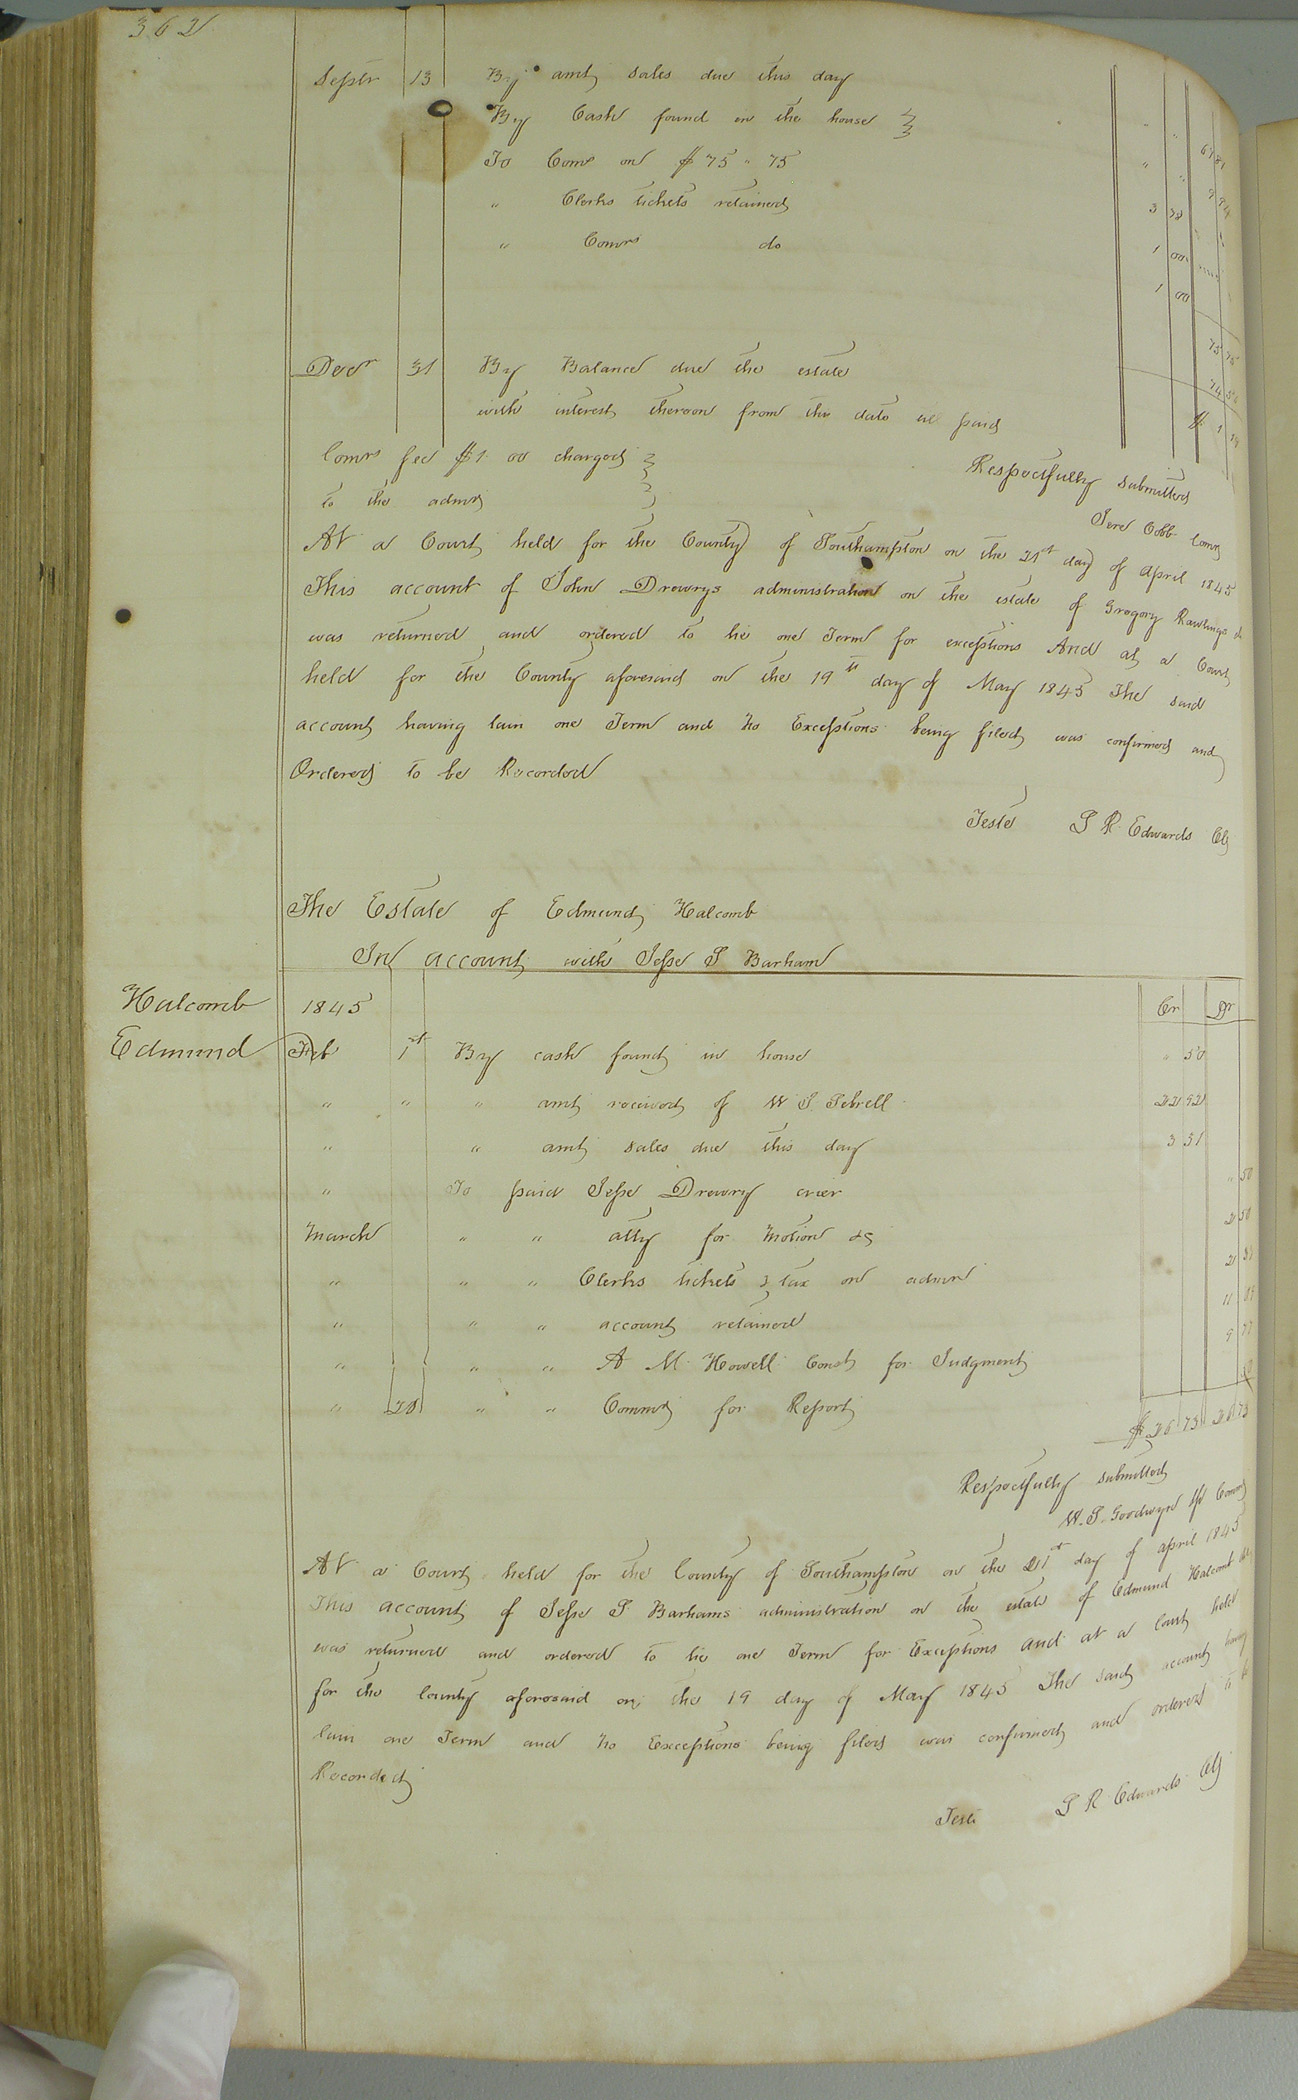 362
Septr 13 By amt sales due this day
By Cash found in the house
To Coms on $75 " 75
" Clerks tickets retained
" Comrs do
67 81
" " 
3 78
1 00
1 00
75 75
Decr 31 By Balance due the estate
with interest thereon from this date til paid
$ 1
Comrs fee $1.00 charged
to the admr
Respectfully submitted
Jere Cobb Comr
At a Court held for the County of Southampton on the 21st day of April 1845
This account of John Drewrys administration on the estate of Gregory Rawlings
was returned and ordered to lie one Term for exceptions And at a Court
held for the County aforesaid on the 19th day of May 1845 The said
account having lain one Term and no Exceptions being filed was confirmed and
Ordered to be Recorded
Teste L R Edwards Clk
The Estate of Edmund Halcomb
In account with Jesse S Barham
Halcomb
Edmund
1845 Cr Dr
Feb 1st By cash found in house " 50
" " " amt received of W S Sebrell 22 92
" " amt sales due this day 3 31
" To paid Jesse Drewry crier " 50
March " " atty for motion &c 2 50
" " " Clerks tickets & tax on admn 2
" " " account retained 11
" " " A M Howell Const for Judgment 9
" 28 " " Commr for Report
$26 73 26 73
Respectfully submitted
W. S. Goodwyn Commr
At a Court held for the County of Southampton on the 21st day of April 1845
This account of Jesse S Barhams administration on the estate of Edmund Halcomb
was returned and ordered to lie one Term for Exceptions and at a Court held
for the County aforesaid on the 19 day of May 1845 The said account having
lain one Term and no Exceptions being filed was confirmed and ordered to be
Recorded
Teste L R Edwards Clk